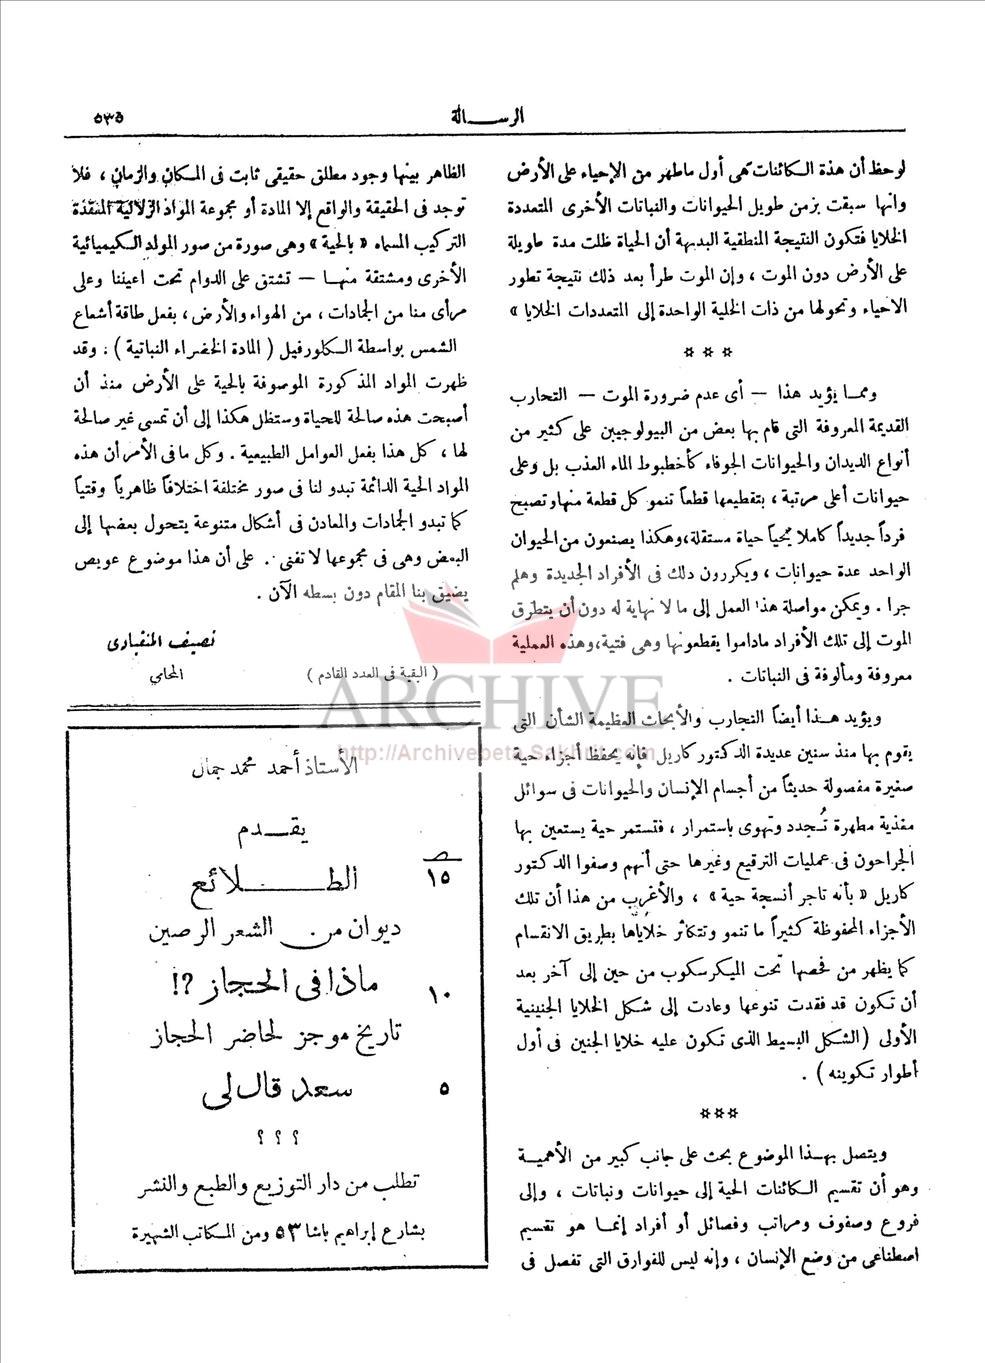 الرسالة
٥٣٥
لوحظ أن هذه الكائنات هى أول ماظهر من الإحياء على الأرض
وانها سبقت بزمن طويل الحيوانات والنباتات الأخرى المتعددة
الخلايا فتكون النتيجة المنطقية البديهة أن الحياة ظلت مدة طويلة
على الأرض دون الموت ، وإن الموت طرأ بعد ذلك نتيجة تطور
الاحياء وتحولها من ذات الخلية الواحدة إلى المتعددات الخلايا »
* * *
ومما يؤيد هذا — أى عدم ضرورة الموت — التجارب
القديمة المعروفة التى قام بها بعض من البيولوجيين على كثير من
أنواع الديدان والحيوانات الجوفاء كأخطبوط الماء العذب بل وعلى
حيوانات أعلى مرتبة ، بتقطيعها قطعاً تنمو كل قطعة منها وتصبح
فرداً جديداً كاملا يحياً حياة مستقلة، وهكذا يصنعون من الحيوان
الواحد عدة حيوانات ، ويكررون ذلك فى الأفراد الجديدة وهلم
جرا . ويمكن مواصلة هذا العمل إلى ما لا نهاية له دون أن يتطرق
الموت إلى تلك الأفراد ماداموا يقطعونها وهى فتية، وهذه العملية
معروفة ومألوفة فى النباتات .
ويؤيد هذا أيضاً التجارب والأبحاث العظيمة الشأن التى
يقوم بها منذ سنين عديدة الدكتور كاريل فإنه يحفظ أجزاء حية
صغيرة مفصولة حديثاً من أجسام الإنسان والحيوانات فى سوائل
مغذية مطهرة تُجدد وتهوى باستمرار ، فتستمر حية يستعين بها
الجراحون فى عمليات الترقيع وغيرها حتى أنهم وصفوا الدكتور
كاريل « بأنه تاجر أنسجة حية » ، والأغرب من هذا أن تلك
الأجزاء المحفوظة كثيراً ما تنمو وتتكاثر خلاياها بطريق الانقسام
كما يظهر من فحصها تحت الميكرسكوب من حين إلى آخر بعد
أن تكون قد فقدت تنوعها وعادت إلى شكل الخلايا الجنينية
الأولى (الشكل البسيط الذى تكون عليه خلايا الجنين فى أول
أطوار تكوينه) .
***
ويتصل بهذا الموضوع بحث على جانب كبير من الأهمية
وهو أن تقسيم الكائنات الحية إلى حيوانات ونباتات ، وإلى
فروع وصفوف ومراتب وفصائل أو أفراد إنما هو تقسيم
اصطناعى من وضع الإنسان ، وإنه ليس للفوارق التى تفصل فى
الظاهر بينها وجود مطلق حقيقى ثابت فى المكان والزمان ، فلا
توجد فى الحقيقة والواقع إلا المادة أو مجموعة المواد الزلالية المنقذة
التركيب المسماه « بالحية » وهى صورة من صور المولد الكيميائية
الأخرى ومشتقة منها — تشتق على الدوام تحت اعيننا وعلى
مرأى منا من الجمادات ، من الهواء والأرض ، بفعل طاقة أشعاع
الشمس بواسطة الكلورفيل ( المادة الخضراء النباتية ) . وقد
ظهرت المواد المذكورة الموصوفة بالحية على الأرض منذ أن
أصبحت هذه صالحة للحياة وستظل هكذا إلى أن تمسى غير صالحة
لها ، كل هذا بفعل العوامل الطبيعية . وكل مافى الأمر أن هذه
المواد الحية الدائمة تبدو لنا فى صور مختلفة اختلافاً ظاهرياً وقتياً
كما تبدو الجمادات والمعادن فى أشكال متنوعة يتحول بعضها إلى
البعض وهى فى مجموعها لا تفنى . على أن هذا موضوع عويص
يضيق بنا المقام دون بسطه الآن .
نصيف المنقبادى
( البقية فى العدد القادم ) المحامي
ARCHIVE
http://Archivebeta.Sakhrit.com
الأستاذ أحمد محمد جمال
يقدم
الطلائع ١٥
ديوان من الشعر الرصين
ماذا فى الحجاز ؟! ١٠
تاريخ موجز لحاضر الحجاز
سعد قال لى ٥
؟ ؟ ؟
تطلب من دار التوزيع والطبع والنشر
بشارع إبراهيم باشا ٥٣ ومن المكاتب الشهيرة